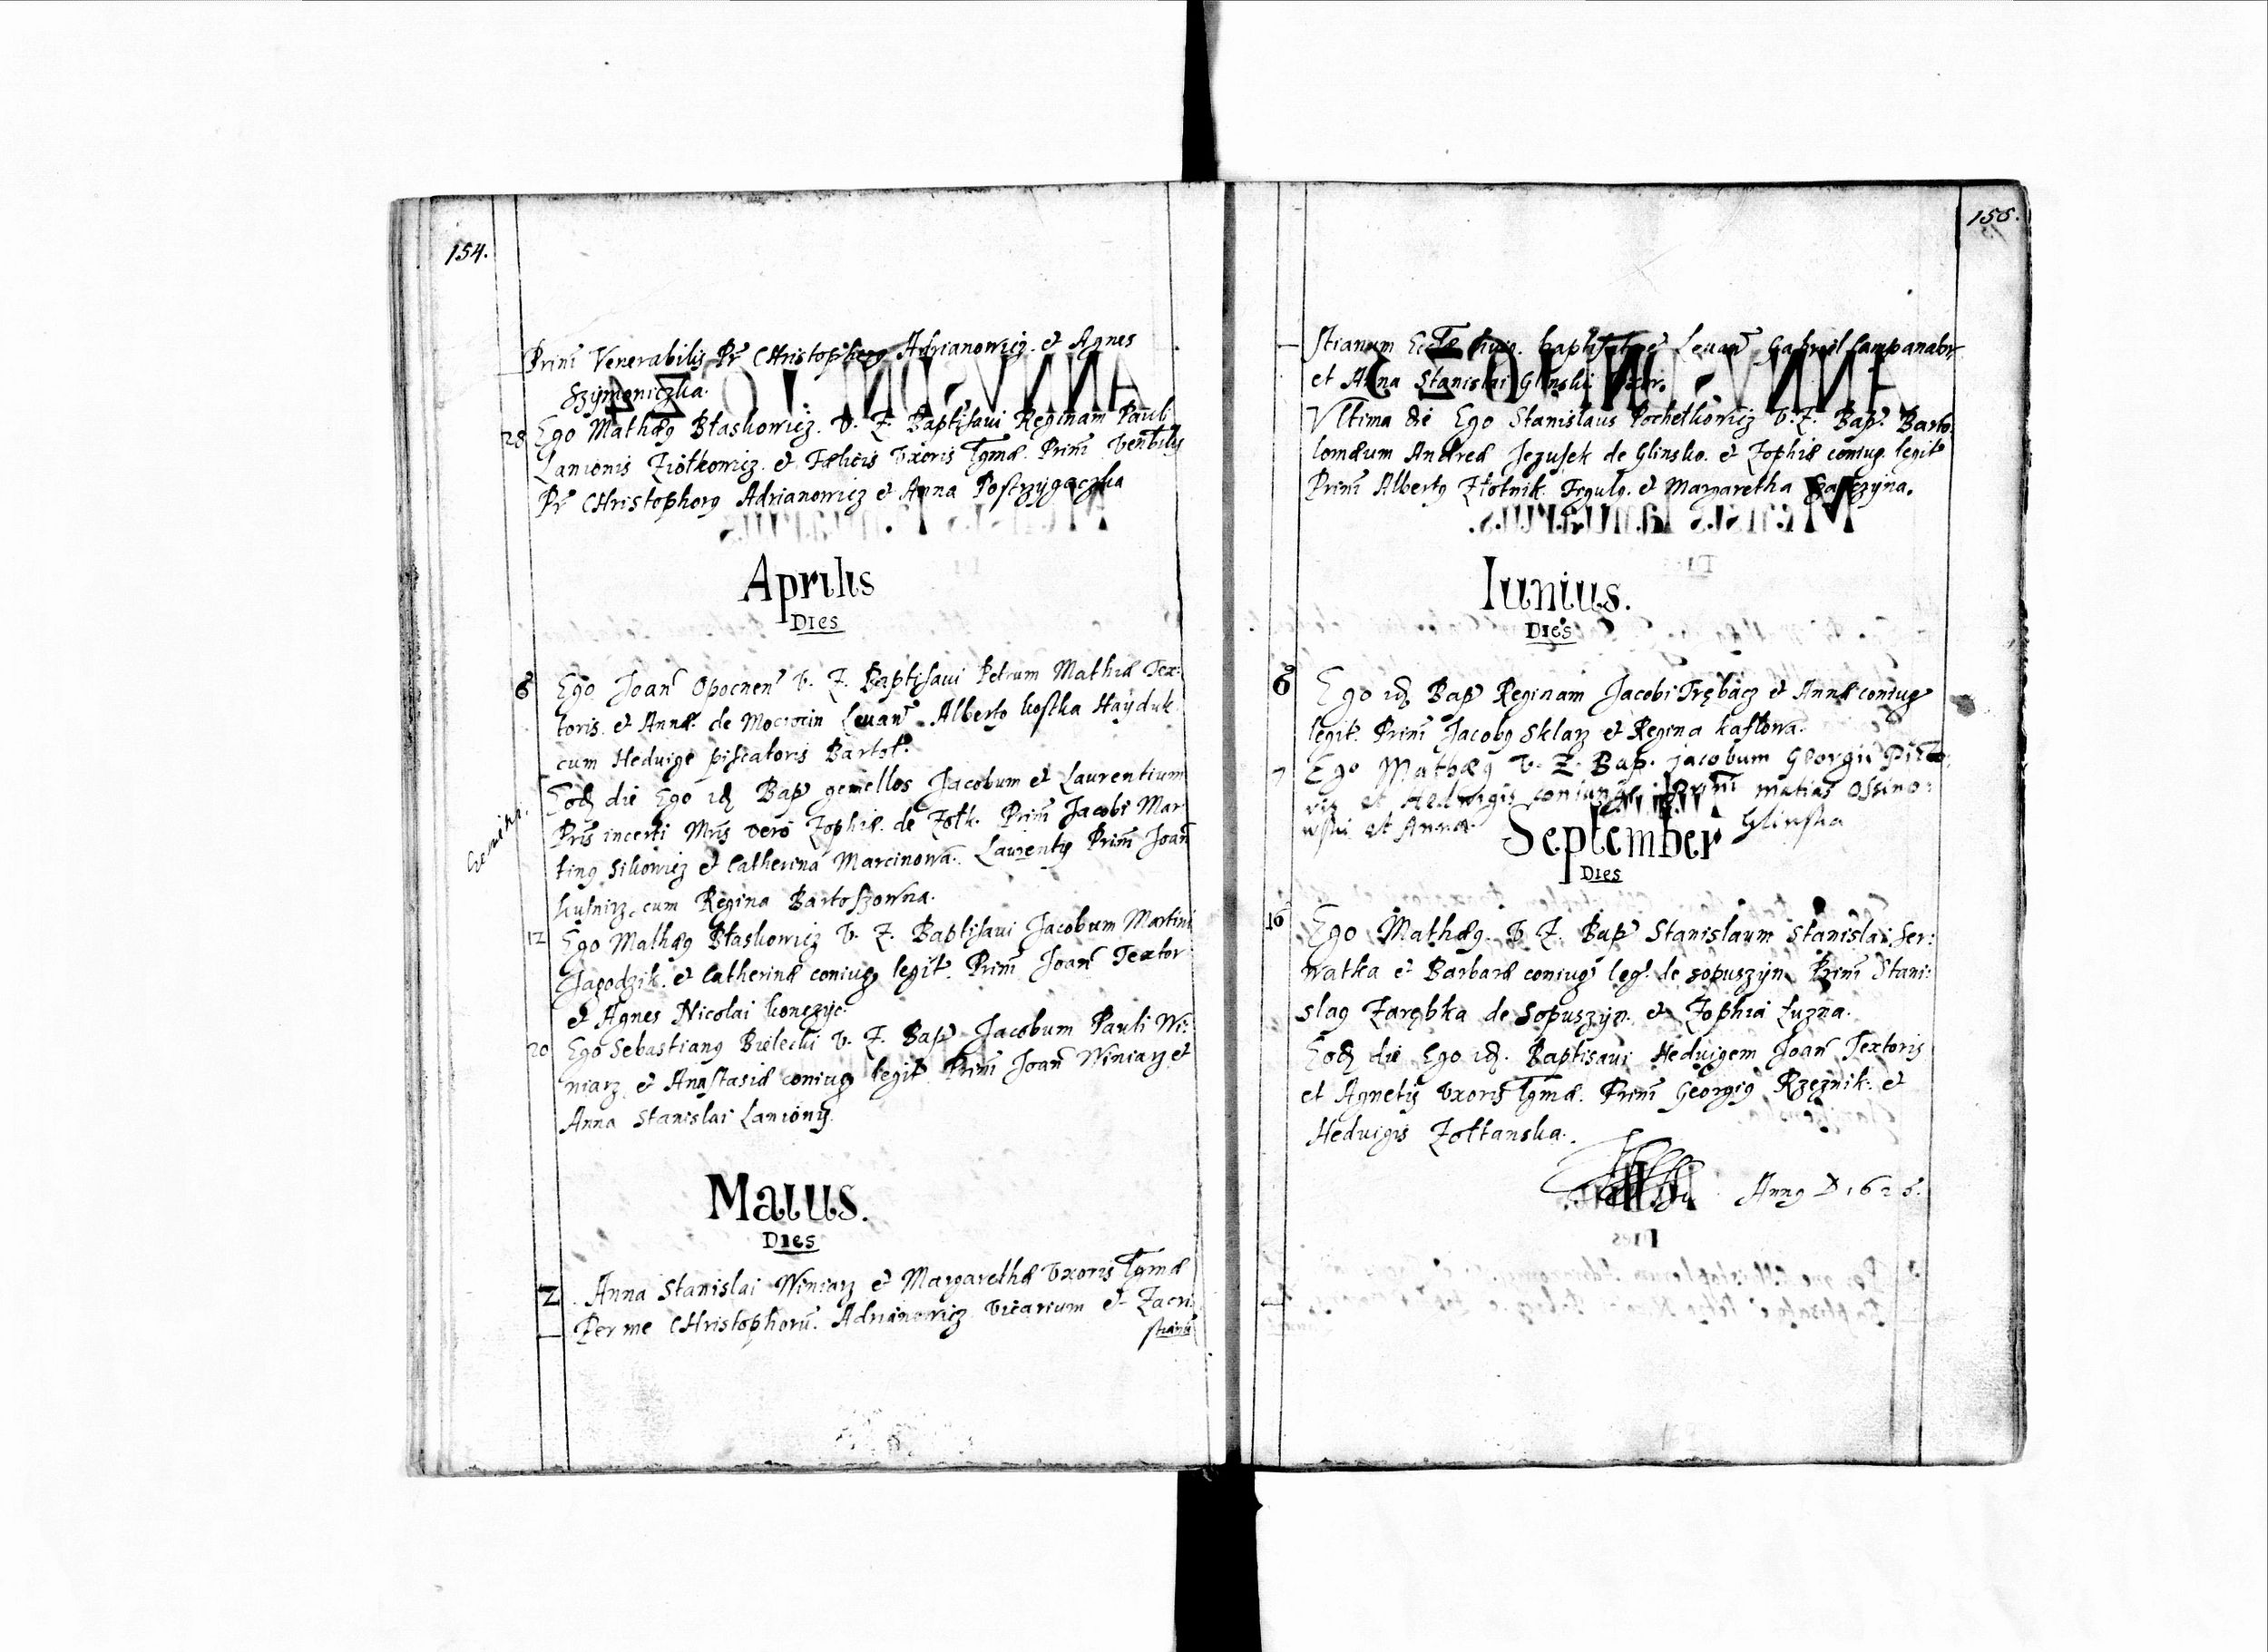 154.
Prim̄ Venerabilis Pr̄ CHristophorg Adrianowicz. et Agnes
Szymoniczka.
28 Ego Mathæg Błaskowicz. V. Z. Baptisaui Reginam Pauli
Lanionis Ziołkowicz. et Fælicis Vxoris lgmæ. Prim̄ Venblis
Pr̄ CHristophorg Adrianowicz et Anna Postrzygaczka
Aprilis
Dies
6 Ego Joan̄ Opocnen̄ V. Z. Baptisaui Petrum Mathiæ Tex:
toris. et Annæ. de Leuan̄. Alberto kostka Hayduk.
cum Heduige piscatoris Bartoł.
Eod die Ego id Bap gemellos Jacobum et Laurentium
Pris incerti Mris vero Zophiæ. de Zołk. Prim̄ Jacobi Mar
ting Sikowicz et Catherina Marcinowa. Laurentij Prim̄ Joan̄
kusnirz cum Regina Bartoszowna.
12 Ego Mathæg Błaskowicz V. Z. Baptisaui Jacobum Martini
Jagodzik. et Catherinæ coniug legit. Prim̄ Joan̄ Textor
et Agnes Nicolai konczyc.
20 Ego Sebastiang Bielecki V. Z. Bap Jacobum Pauli Wi:
niarz et Anastasiæ coniug legit Prim̄ Joan̄ Winiarz et
Anna Stanislai Lanionis.
Maius.
Dies
Anna Stanislai Winiarz et Margarethæ Vxoris lgmæ
Per me CHristophorū. Adrianowicz Vicarium et Zacri
stianū
155.
stianum Ecclæ huig. baptisat et Leuan̄ Gabriel Campanator
et Anna Stanislai Glinski Vxor.
Vltima die Ego Stanislaus Pochetkowicz V. Z. Bap. Barto.
lomæum Andreæ Jezusek de Glinsko. et Zophiæ coniug. legit
Prim̄ Albertg Złotnik. Fegulg. et Margaretha
Iunius.
Dies
6 Ego id Bap Reginam Jacobi Trębacz et Annæ coniug
legit. Prim̄ Jacobg Sklarz et Regina kastowa.
7 Ego Mathæg V. Z. Bap. jacobum Georgii
et Hedwigis Prim̄ matias Ossino:
wski et Anna. Glinska
September
Dies
16 Ego Mathæg. V Z. Bap Stanislaum Stanislai Ser:
watka et Barbaræ coniug leg. de sopuszyn Prim̄ Stani:
slag Zarębka de Sopuszyn. et Zophia Łuzna.
Eod die Ego id. Baptisaui Heduigem Joan̄ Textoris
et Agnetis Vxoris lgmæ. Prim̄ Georgig Rzeznik. et
Heduigis Zołtanska.
Anng D 1625.